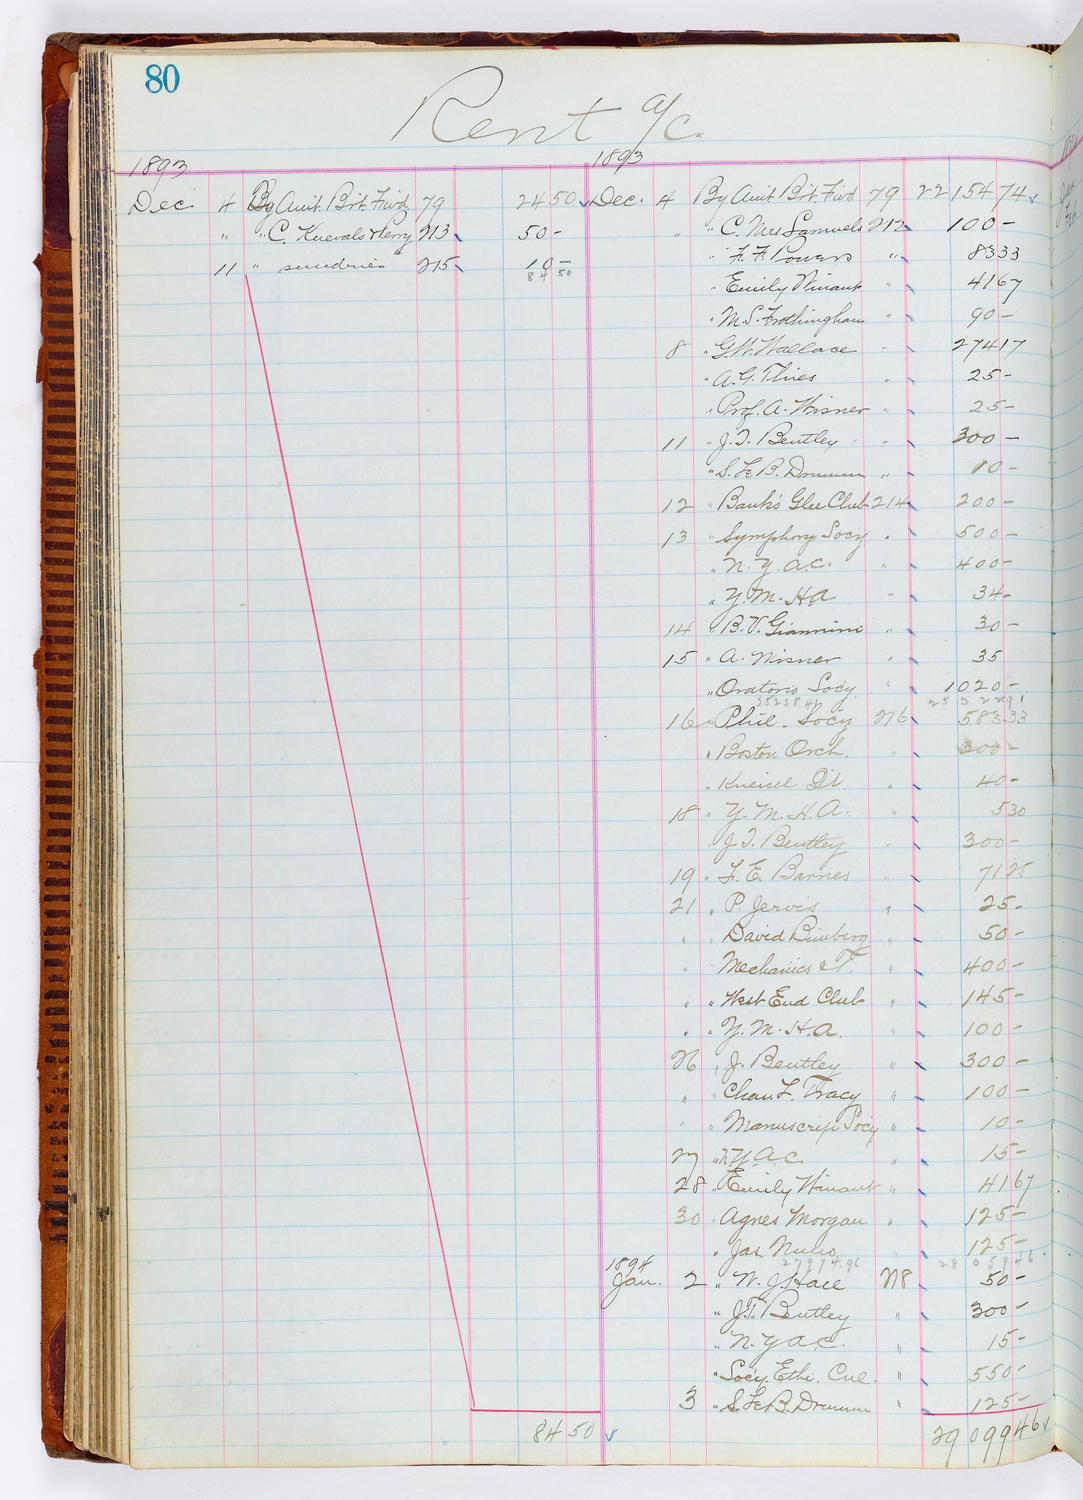 80
Rent a/c.
1893
Dec 4 By Amt. Brt. Fwd 79 24 50
" " C. Knevals & Perry 213 50 -
11 " sundries " 215 10 -
84 50
84 50
1893
Dec. 4 By Amt Brt. Fwd 79 22 154 74
" " C. Mrs Samuels 212 100 -
" F. F. Powers " 83 33
" Emily Winant " 41 67
" M. S. Frothingham " 90 -
8 " G.W. Wallace " 274 17
" A. G. Thies " 25 -
" Prof. A. Wisner " 25 -
11 " J. T. Bentley " 300 -
" S. Le B. Drumm " 10 -
12 " Banks Glee Club 214 200 -
13 " Symphony Socy " 500 -
" N. Y. A.C. " 400 -
" Y. M. H A " 34 -
14 " B. V. Giannini " 30 -
15 " A. Wisner " 35
" Oratorio Socy " 1020 -
16 " Phil. Socy 216 583 33
" Boston Orch. " 300 -
" Kneisel Qt. " 40 -
18 " Y. M. H. A. " 5 30
J. T. Bentley " 300 -
19 " F. E. Barnes " 71 25
21 " P. Jervis " 25 -
" " David Bimberg " 50 -
" Mechanics & T. " 400 -
" " West End Club " 145 -
" " Y. M. H. A. " 100 -
26 " J. Bentley " 300 -
" " Chas. F. Tracy " 100 -
" " Manuscrip Socy " 10 -
27 " N.Y.A.C. " 15 -
28 " Emily Winant " 41 67
30 " Agnes Morgan " 125 -
" Jas. " 125 -
27974.96 28 059 46
1894
Jan. 2 " W. J. 218 50 -
" J.T. Bentley " 300 -
" N. Y A C. " 15 -
" Socy. Ethi. Cul. " 550 -
3 " S. Le B. Drumm " 125 -
29 099 46